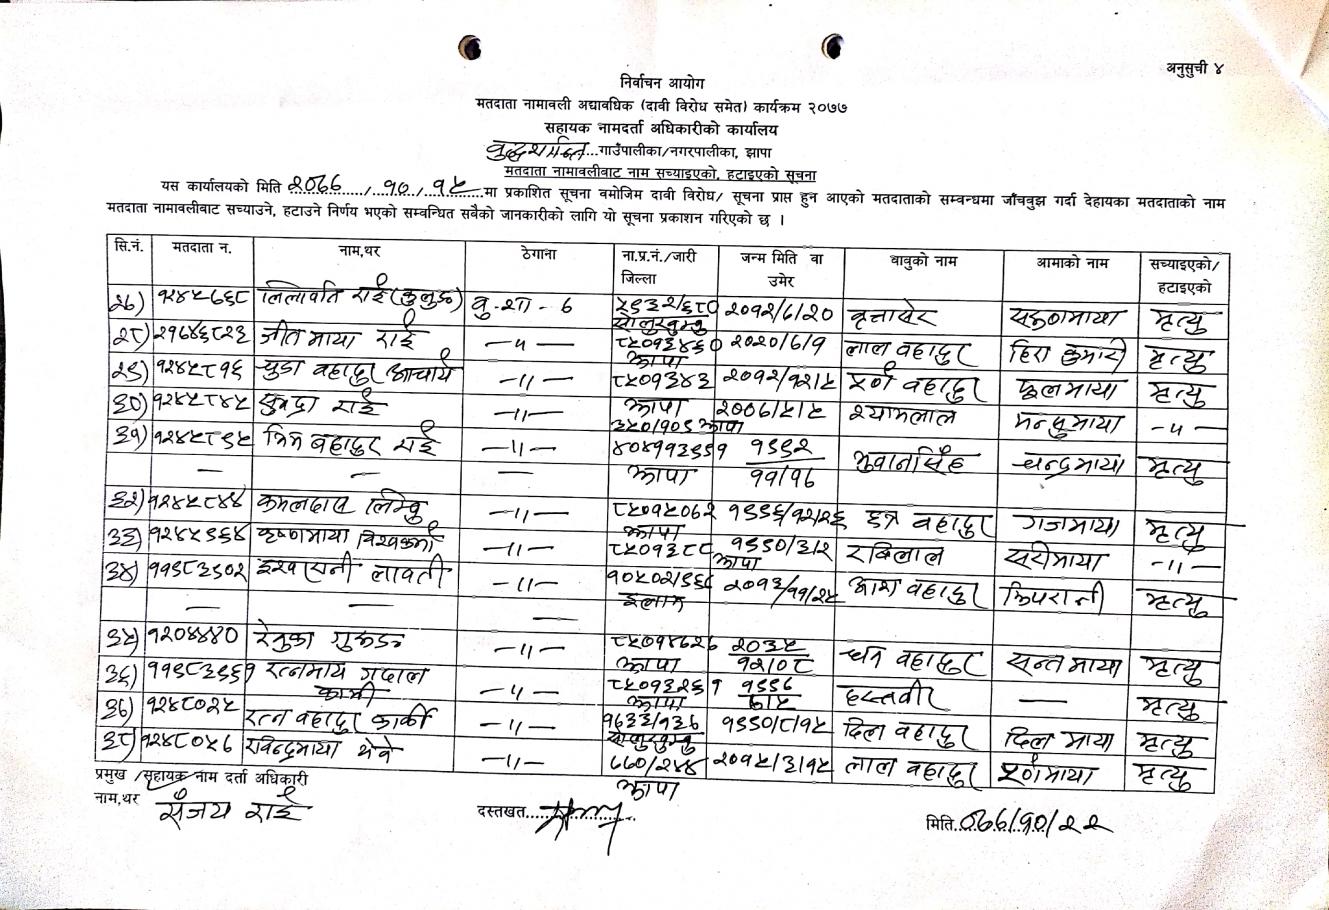 अनुसुची ४
निर्वाचन आयोग
मतदाता नामावली अद्यावधिक (दावी विरोध समेत) कार्यक्रम २०७७
सहायक नामदर्ता अधिकारीको कार्यालय
...गाउँपालिका/नगरपालिका, झापा
मतदाता नामावलीबाट नाम सच्याइएको, हटाइएको सूचना
यस कार्यालयको मिति २०७७/१०/१५ मा प्रकाशित सूचना बमोजिम दावी विरोध/ सूचना प्राप्त हुन आएको मतदाताको सम्बन्धमा जाँचबुझ गर्दा देहायका मतदाताको नाम
मतदाता नामावलीबाट सच्याउने, हटाउने निर्णय भएको सम्वन्धित सबैको जानकारीको लागि यो सूचना प्रकाशन गरिएको छ ।
सि.नं. मतदाता न. नाम,थर ठेगाना ना.प्र.नं./जारी जिल्ला जन्म मिति वा उमेर बाबुको नाम आमाको नाम सच्याइएको/हटाइएको
२७) १२४५७६८ लिलावति राई बु.शा - ७ सोलुखुम्बु २०१२/७/२० मृत्यु
२८) २१७४६८२३ जीत माया राई -॥- ८५०१३४६० झापा २०२०/७/१ लाल बहादुर हिरा कुमारी मृत्यु
२९) १२४५८१६ चुडा बहादुर आचार्य -॥- ८५०१३४३ झापा २०१२/१२/५ पूर्ण बहादुर फूलमाया मृत्यु
३०) १२४५८४५ सुभद्रा राई -॥- ३५०/१०९ झापा २००७/५/५ श्यामलाल -॥-
३१) १२४५८९५ भिम बहादुर राई -॥- ४०४११३९९१ झापा १९९२/११/१६ भुवानसिंह चन्द्रमाया मृत्यु
३२) १२४५८४४ कमलदास लिम्बु -॥- ८५०१५०७२ झापा १९९६/१२/२६ इन्द्र बहादुर गजमाया मृत्यु
३३) १२४५९६४ कृष्णमाया विश्वकर्मा -॥- ८५०१३८८ झापा १९९०/३/२ रबिलाल सरीमाया -॥-
३४) ११९८३९०२ लावती -॥- १०५०२/९९६ इलाम २०१३/११/२५ आश बहादुर मृत्यु
३५) १२०४४४० रेनुका गुरुङ -॥- ८५०१४६२६ झापा २०३५/१२/०८ धन बहादुर सन्तमाया मृत्यु
३६) ११९८३९६१ रत्नमाय गदाल कामी -॥- ८५०१३२६१ झापा १९९६/८/५ हस्तवीर — मृत्यु
३७) १२४८०२५ रत्न बहादुर कार्की -॥- १६३३/१३६ सोलुखुम्बु १९९०/८/१५ दिल बहादुर दिल माया मृत्यु
३८) १२४८०५६ रविन्द्रमाया थेबे -॥- ७७०/२४४ झापा २०१५/३/१५ लाल बहादुर पूर्णमाया मृत्यु
प्रमुख /सहायक नाम दर्ता अधिकारी
नाम,थर संजय राई
दस्तखत
मिति.०७७/१०/२२